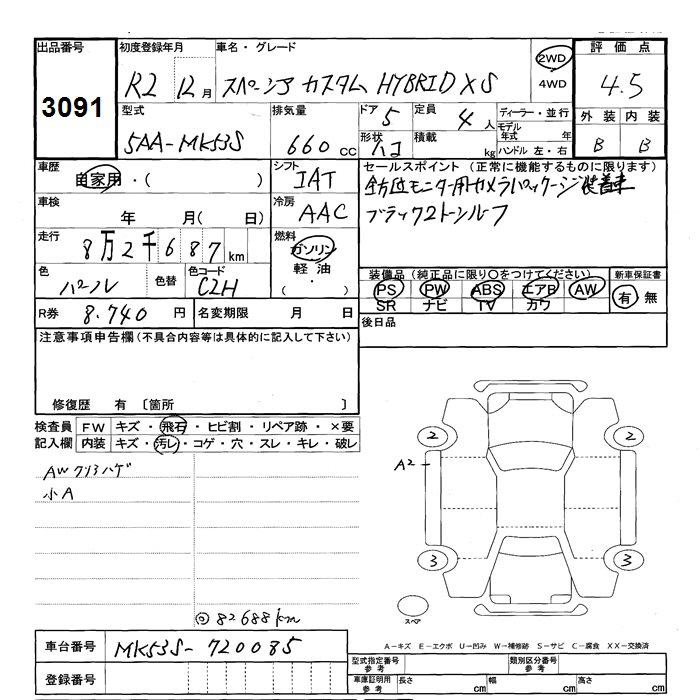 出品番号 初度登録年月 車名・グレード 評価点
3091 R2 12月 スペーシア カスタム HYBRID XS 2WD 4WD 4.5
型式 排気量 ドア 5 定員 4人 ディーラー・並行 外装 内装
5AA-MK53S 660cc 形状 ハコ 積載 kg モデル年式 年 ハンドル 左・右 B B
車歴 自家用・( ) シフト IAT セールスポイント (正常に機能するものに限ります)
車検 年 月(日) 冷房 AAC 全方位モニター用カメラパッケージ装着車
ブラック2トーンルーフ
走行 8万2千687km 燃料 ガソリン 軽油 ( ・ )
色 パープル 色替 色コード CZH 装備品(純正品に限り○をつけてください) 新車保証書
PS PW ABS エアB AW 有 無
SR ナビ TV カワ
R券 8.740円 名変期限 月 日 後日品
注意事項申告欄(不具合内容等は具体的に記入して下さい)
修復歴 有 〔箇所 〕
検査員 FW キズ・飛石・ヒビ割・リペア跡・×要
記入欄 内装 キズ・汚レ・コゲ・穴・スレ・キレ・破レ
AWクリアハゲ
小A
2 2
A2
3 3
スペア
◎82688km
車台番号 MK53S-720085
A-キズ E-エクボ U-凹み W-補修跡 S-サビ C-腐食 XX-交換済
登録番号 型式指定番号 参考 類別区分番号 参考
車庫証明用 参考 長さ cm 幅 cm 高さ cm